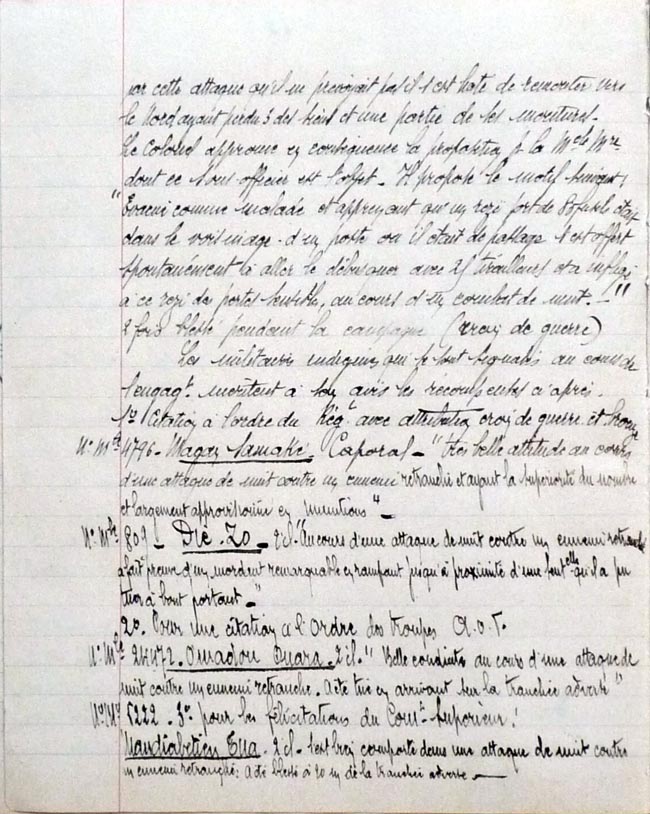 par cette attaque qu'il ne prévoyait pas il s'est hâté de remonter vers
le Nord ayant perdu 3 des siens et une partie de ses montures.
Le Colonel approuve en conséquence la proposition p. la Mlle Mre
dont ce sous officier est l'objet. Il propose le motif suivant:
"Evacué comme malade et apprenant qu'un rezi fort de 80 fusils était
dans le voisinage d'un poste où il était de passage s'est offert
spontanément à aller le débusquer avec 25 tirailleurs et a infligé
à ce rezi des pertes sensibles, au cours d'un combat de nuit. - "
2 fois blessé pendant la campagne (croix de guerre)
Les militaires indigènes qui se sont signalés au cours de
l'engagt. méritent à son avis les récompenses ci après.
1º Citation à l'ordre du Régt avec attribution croix de guerre et bronze
Nº Mle 4796 - Magan Samaké. Caporal - "Très belle attitude au cours
d'une attaque de nuit contre un ennemi retranché et ayant la supériorité du nombre
et largement approvisionné en munitions" -
Nº Mle 8091 Dié Zo - 2 cl. "Au cours d'une attaque de nuit contre un ennemi retranché
a fait preuve d'un mordant remarquable en rampant jusqu'à proximité d'une sentelle qu'il a pu
tuer à bout portant - "
2º. Pour une citation à l'Ordre des troupes A.O.F.
Nº Mle 24472. Amadou Ouara. 2 cl. " Belle conduite au cours d'une attaque de
nuit contre un ennemi retranché. A été tué en arrivant sur la tranchée adverse "
Nº Mle 5222 - 3º pour les félicitations du Comt Supérieur:
2 cl - S'est bien comporté dans une attaque de nuit contre
un ennemi retranché: A été blessé à 20 m de la tranchée adverse -